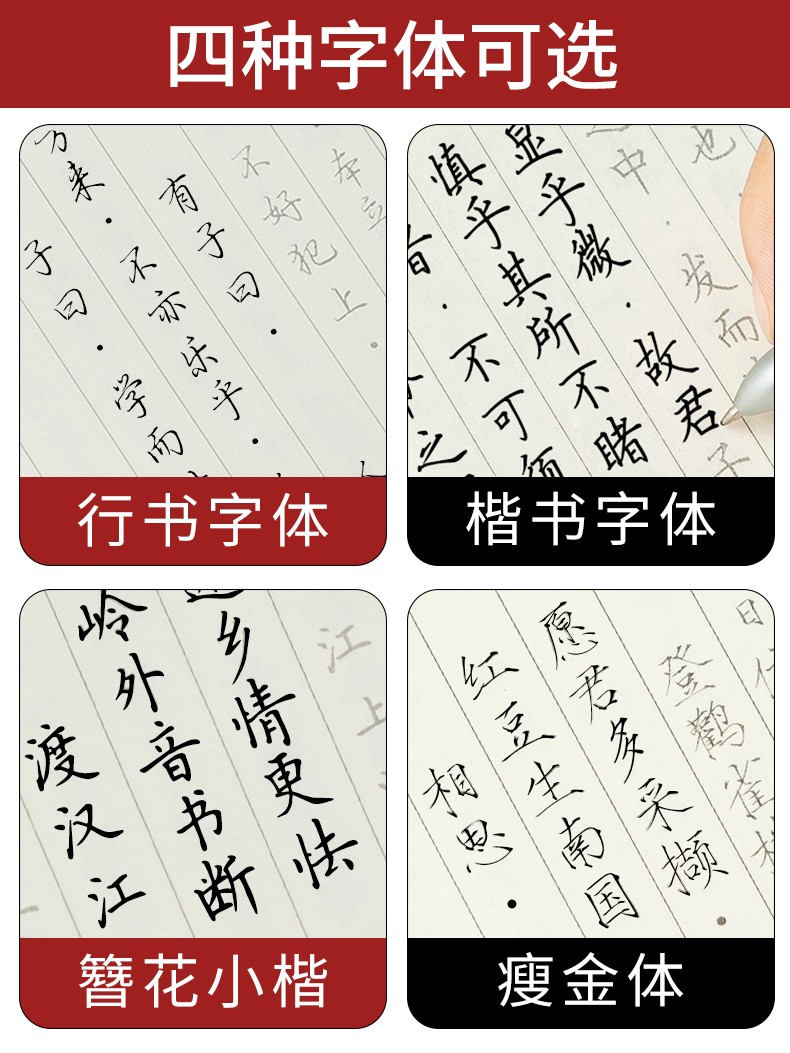 四种字体可选
子曰。学而
方来。不亦乐乎。
有子曰。
不好犯上。
本立
行书字体
之
不可须
慎乎其所不睹
显乎微。故君子
中。发而
也
楷书字体
渡汉江
岭外音书断
乡情更怯
江上
簪花小楷
相思。
红豆生南国
愿君多采撷。
登鹳雀
日
瘦金体